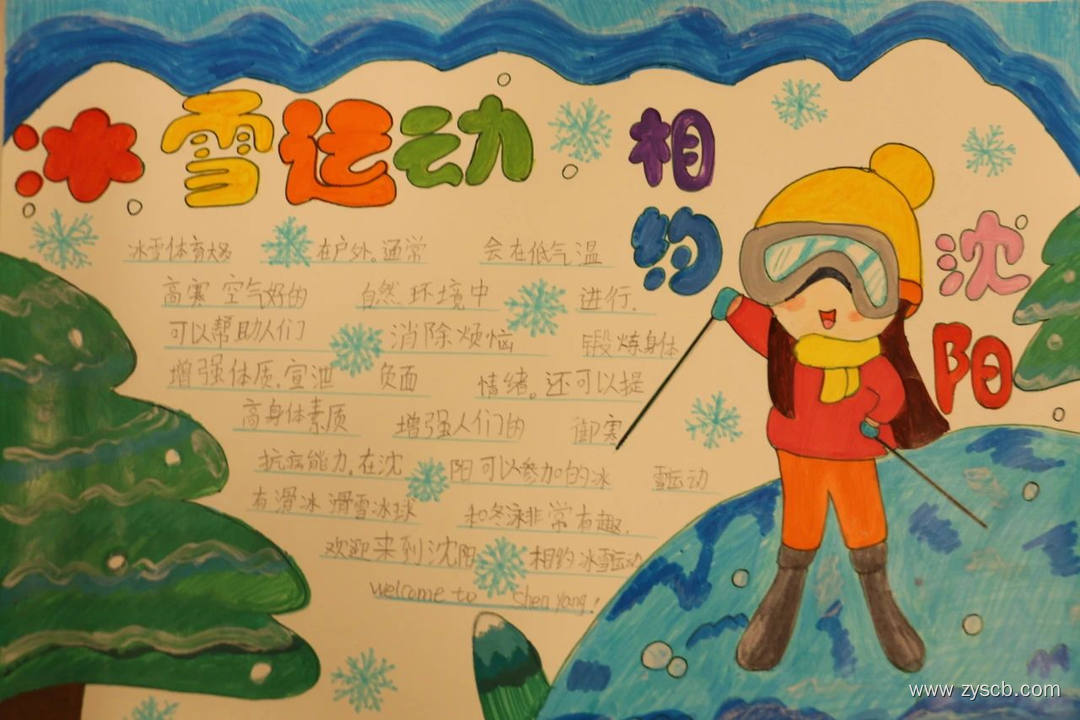 冰雪运动
相约
沈阳
冰雪体育大多 在户外。通常 会在低气温
高寒 空气好的 自然环境中 进行.
可以帮助人们 消除烦恼 锻炼身体
增强体质,宣泄 负面 情绪。还可以提
高身体素质 增强人们的 御寒
抗病能力,在沈 阳可以参加的冰 雪运动
有滑冰 滑雪冰球 和冬泳非常有趣.
欢迎来到沈阳 相约冰雪运动
welcome to Shen yang!
www.zyscb.com